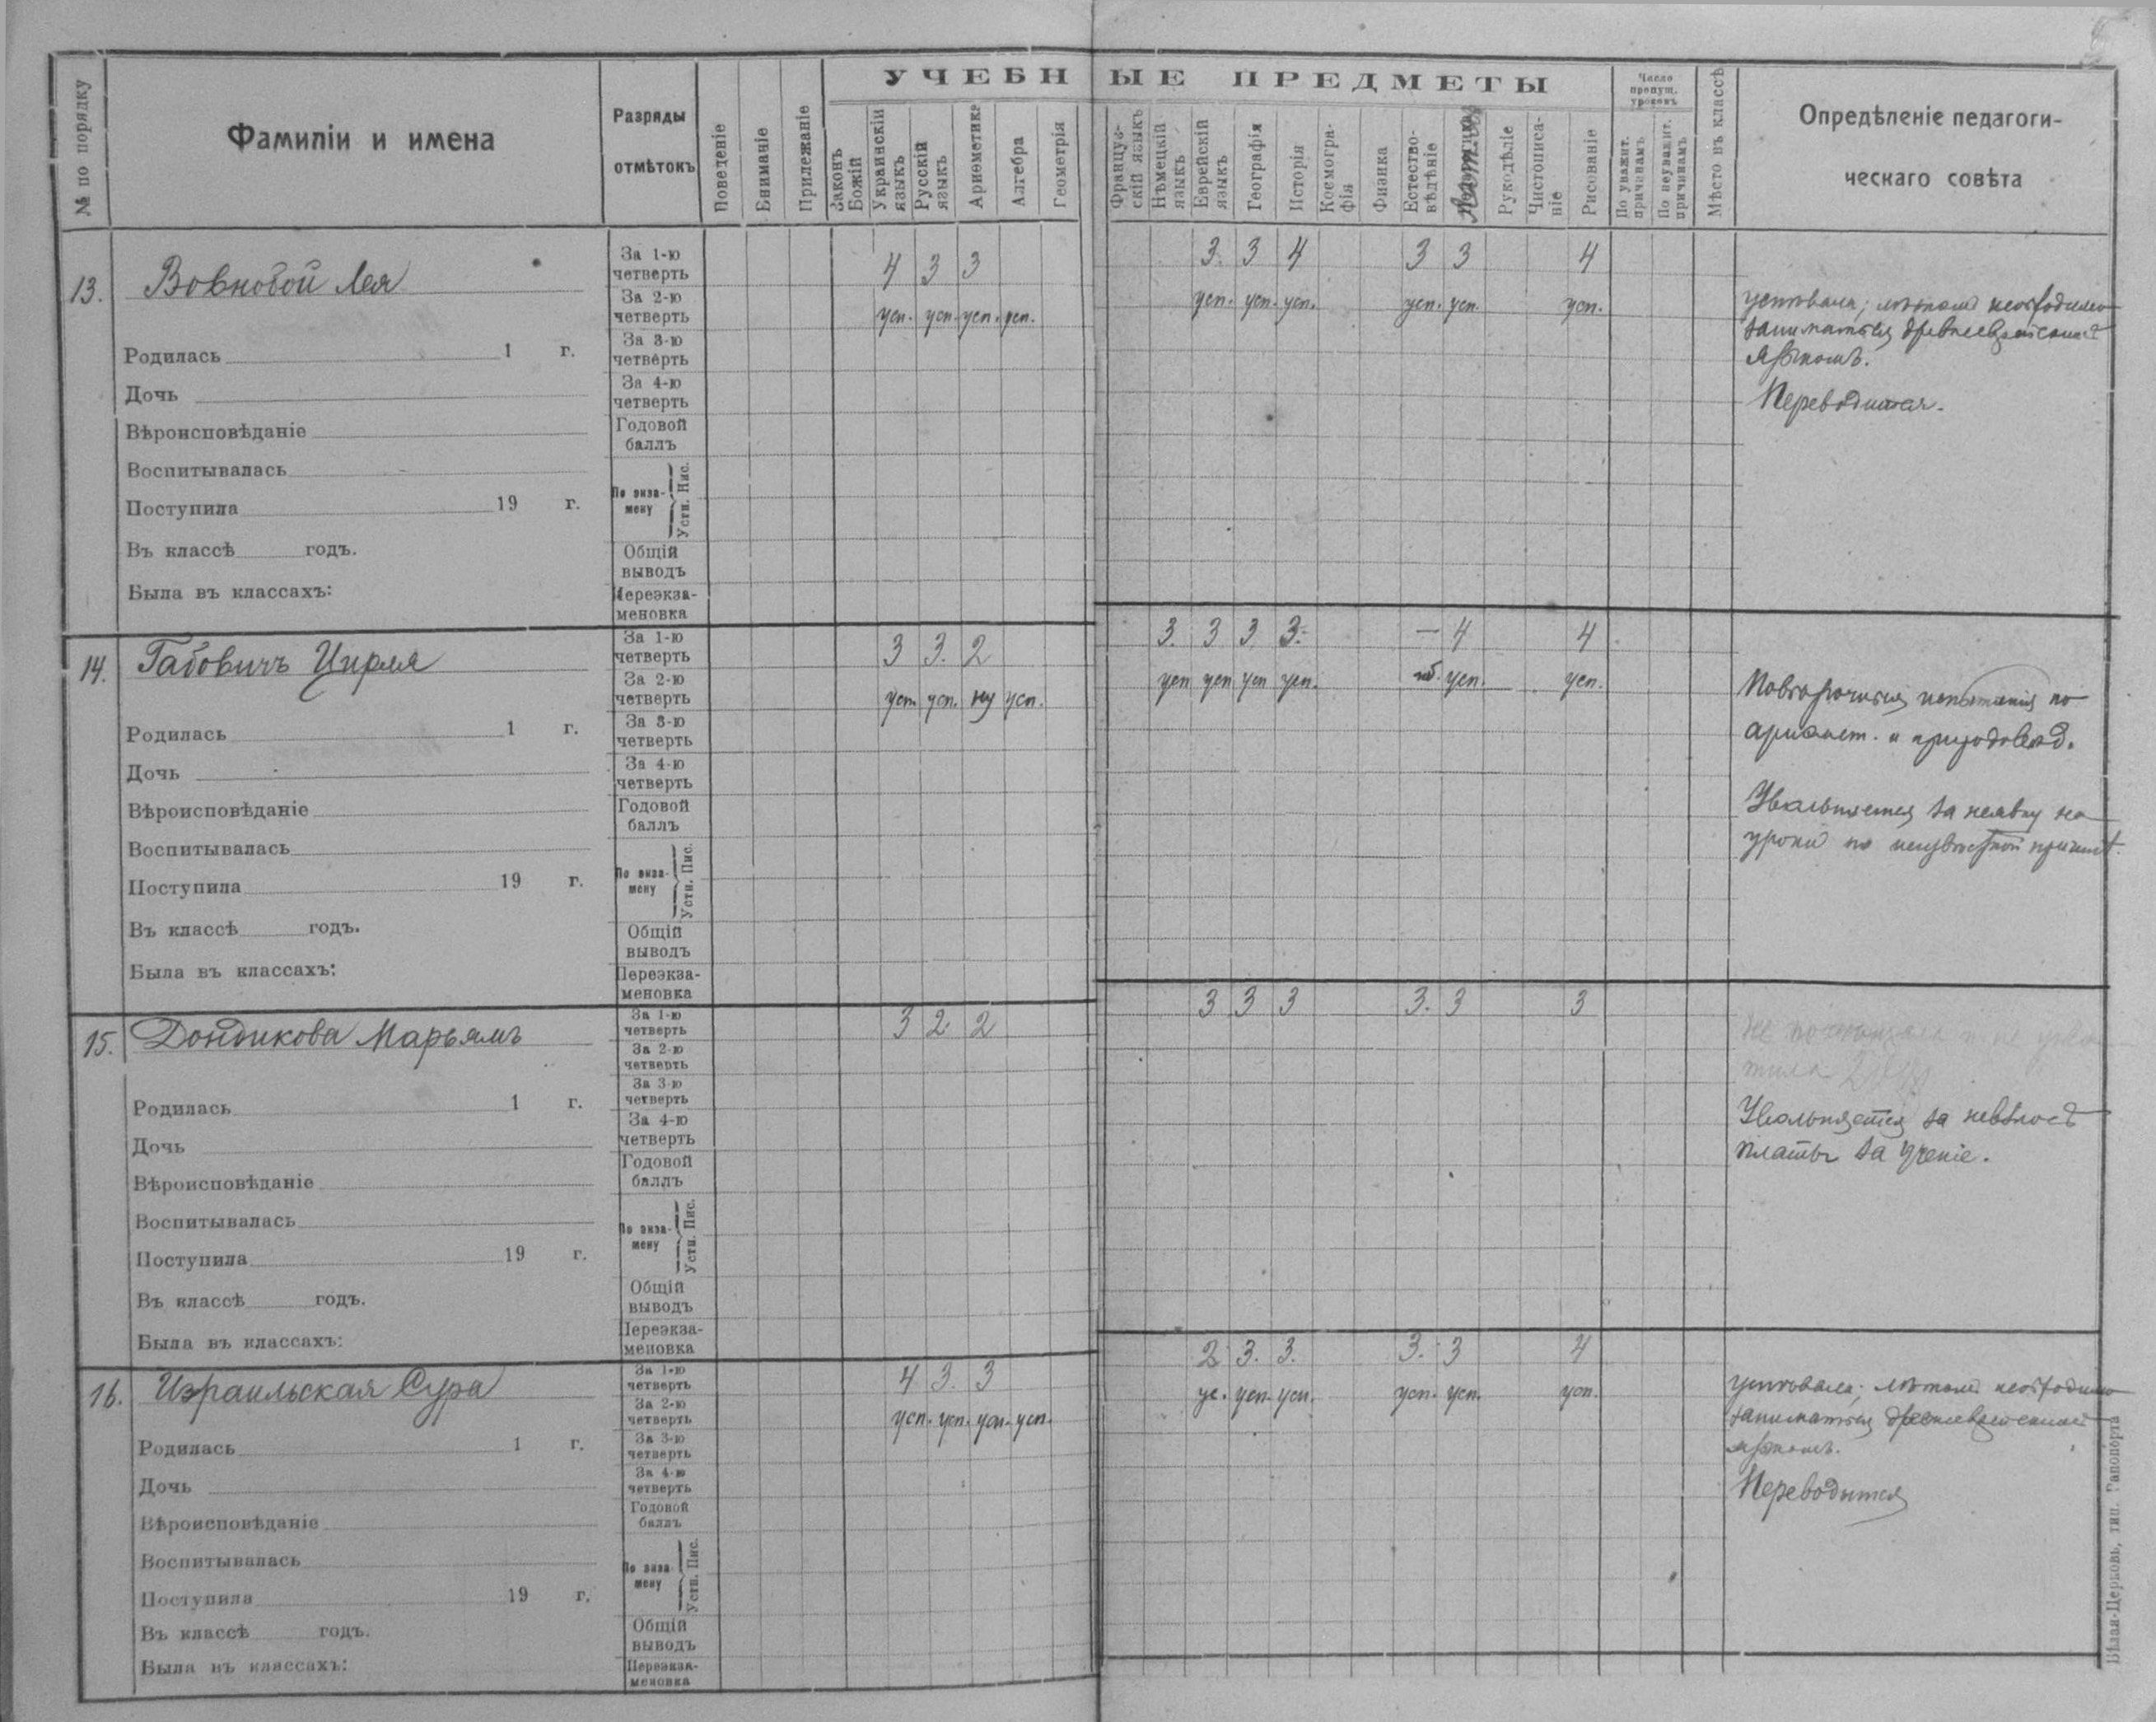 УЧЕБНЫЕ ПРЕДМЕТЫ
№ по порядку
Фамиліи и имена
Разряды
отмѣтокъ
Поведеніе
Вниманіе
Прилежаніе
Законъ
Божій
Украинскій
языкъ
Русскій
языкъ
Ариѳметика
Алгебра
Геометрія
Француз-
скій языкъ
Нѣмецкій
языкъ
Еврейскій
языкъ
Географія
Исторія
Космогра-
фія
Физика
Естество-
вѣдѣніе
Рукодѣліе
Чистописа-
ніе
Рисованіе
Число
пропущ.
уроковъ
По уважит.
причинамъ
По неуважит.
причинамъ
Мѣсто въ классѣ
Опредѣленіе педагоги-
ческаго совѣта
13.
Вовновой Лея
Родилась 1 г.
Дочь
Вѣроисповѣданіе
Воспитывалась
Поступила 19 г.
Въ классѣ годъ.
Была въ классахъ:
За 1-ю
четверть
4 3 3 3. 3 4 3 3 4
За 2-ю
четверть
усп. усп. усп. усп. усп. усп. усп. усп. усп. усп.
За 3-ю
четверть
За 4-ю
четверть
Годовой
баллъ
По экза-
мену
Устн. Пис.
Общій
выводъ
Переэкза-
меновка
успѣвала; лѣтомъ необходимо
заниматься древнееврейскимъ
языкомъ.
Переводится.
14.
Габовичъ Цирля
Родилась 1 г.
Дочь
Вѣроисповѣданіе
Воспитывалась
Поступила 19 г.
Въ классѣ годъ.
Была въ классахъ:
За 1-ю
четверть
3 3. 2 3. 3 3 3. — 4 4
За 2-ю
четверть
усп. усп. ну усп. усп усп усп усп. усп. усп.
За 3-ю
четверть
За 4-ю
четверть
Годовой
баллъ
По экза-
мену
Устн. Пис.
Общій
выводъ
Переэкза-
меновка
испытанія по
ариѳмет. и природовѣд.
Увольняется за неявку на
уроки по неизвѣстной причинѣ.
15.
Дондикова Марьямъ
Родилась 1 г.
Дочь
Вѣроисповѣданіе
Воспитывалась
Поступила 19 г.
Въ классѣ годъ.
Была въ классахъ:
За 1-ю
четверть
3 2 2 3 3 3 3. 3 3
За 2-ю
четверть
За 3-ю
четверть
За 4-ю
четверть
Годовой
баллъ
По экза-
мену
Устн. Пис.
Общій
выводъ
Переэкза-
меновка
Увольняется за невзносъ
платы за ученіе.
16.
Израильская Сура
Родилась 1 г.
Дочь
Вѣроисповѣданіе
Воспитывалась
Поступила 19 г.
Въ классѣ годъ.
Была въ классахъ:
За 1-ю
четверть
4 3. 3 2 3. 3. 3. 3 4
За 2-ю
четверть
усп. усп. усп. усп. ус. усп. усп. усп. усп. усп.
За 3-ю
четверть
За 4-ю
четверть
Годовой
баллъ
По экза-
мену
Устн. Пис.
Общій
выводъ
Переэкза-
меновка
успѣвала; лѣтомъ необходимо
заниматься древнееврейскимъ
языкомъ.
Переводится
Бѣлая-Церковь, тип. Рапопорта